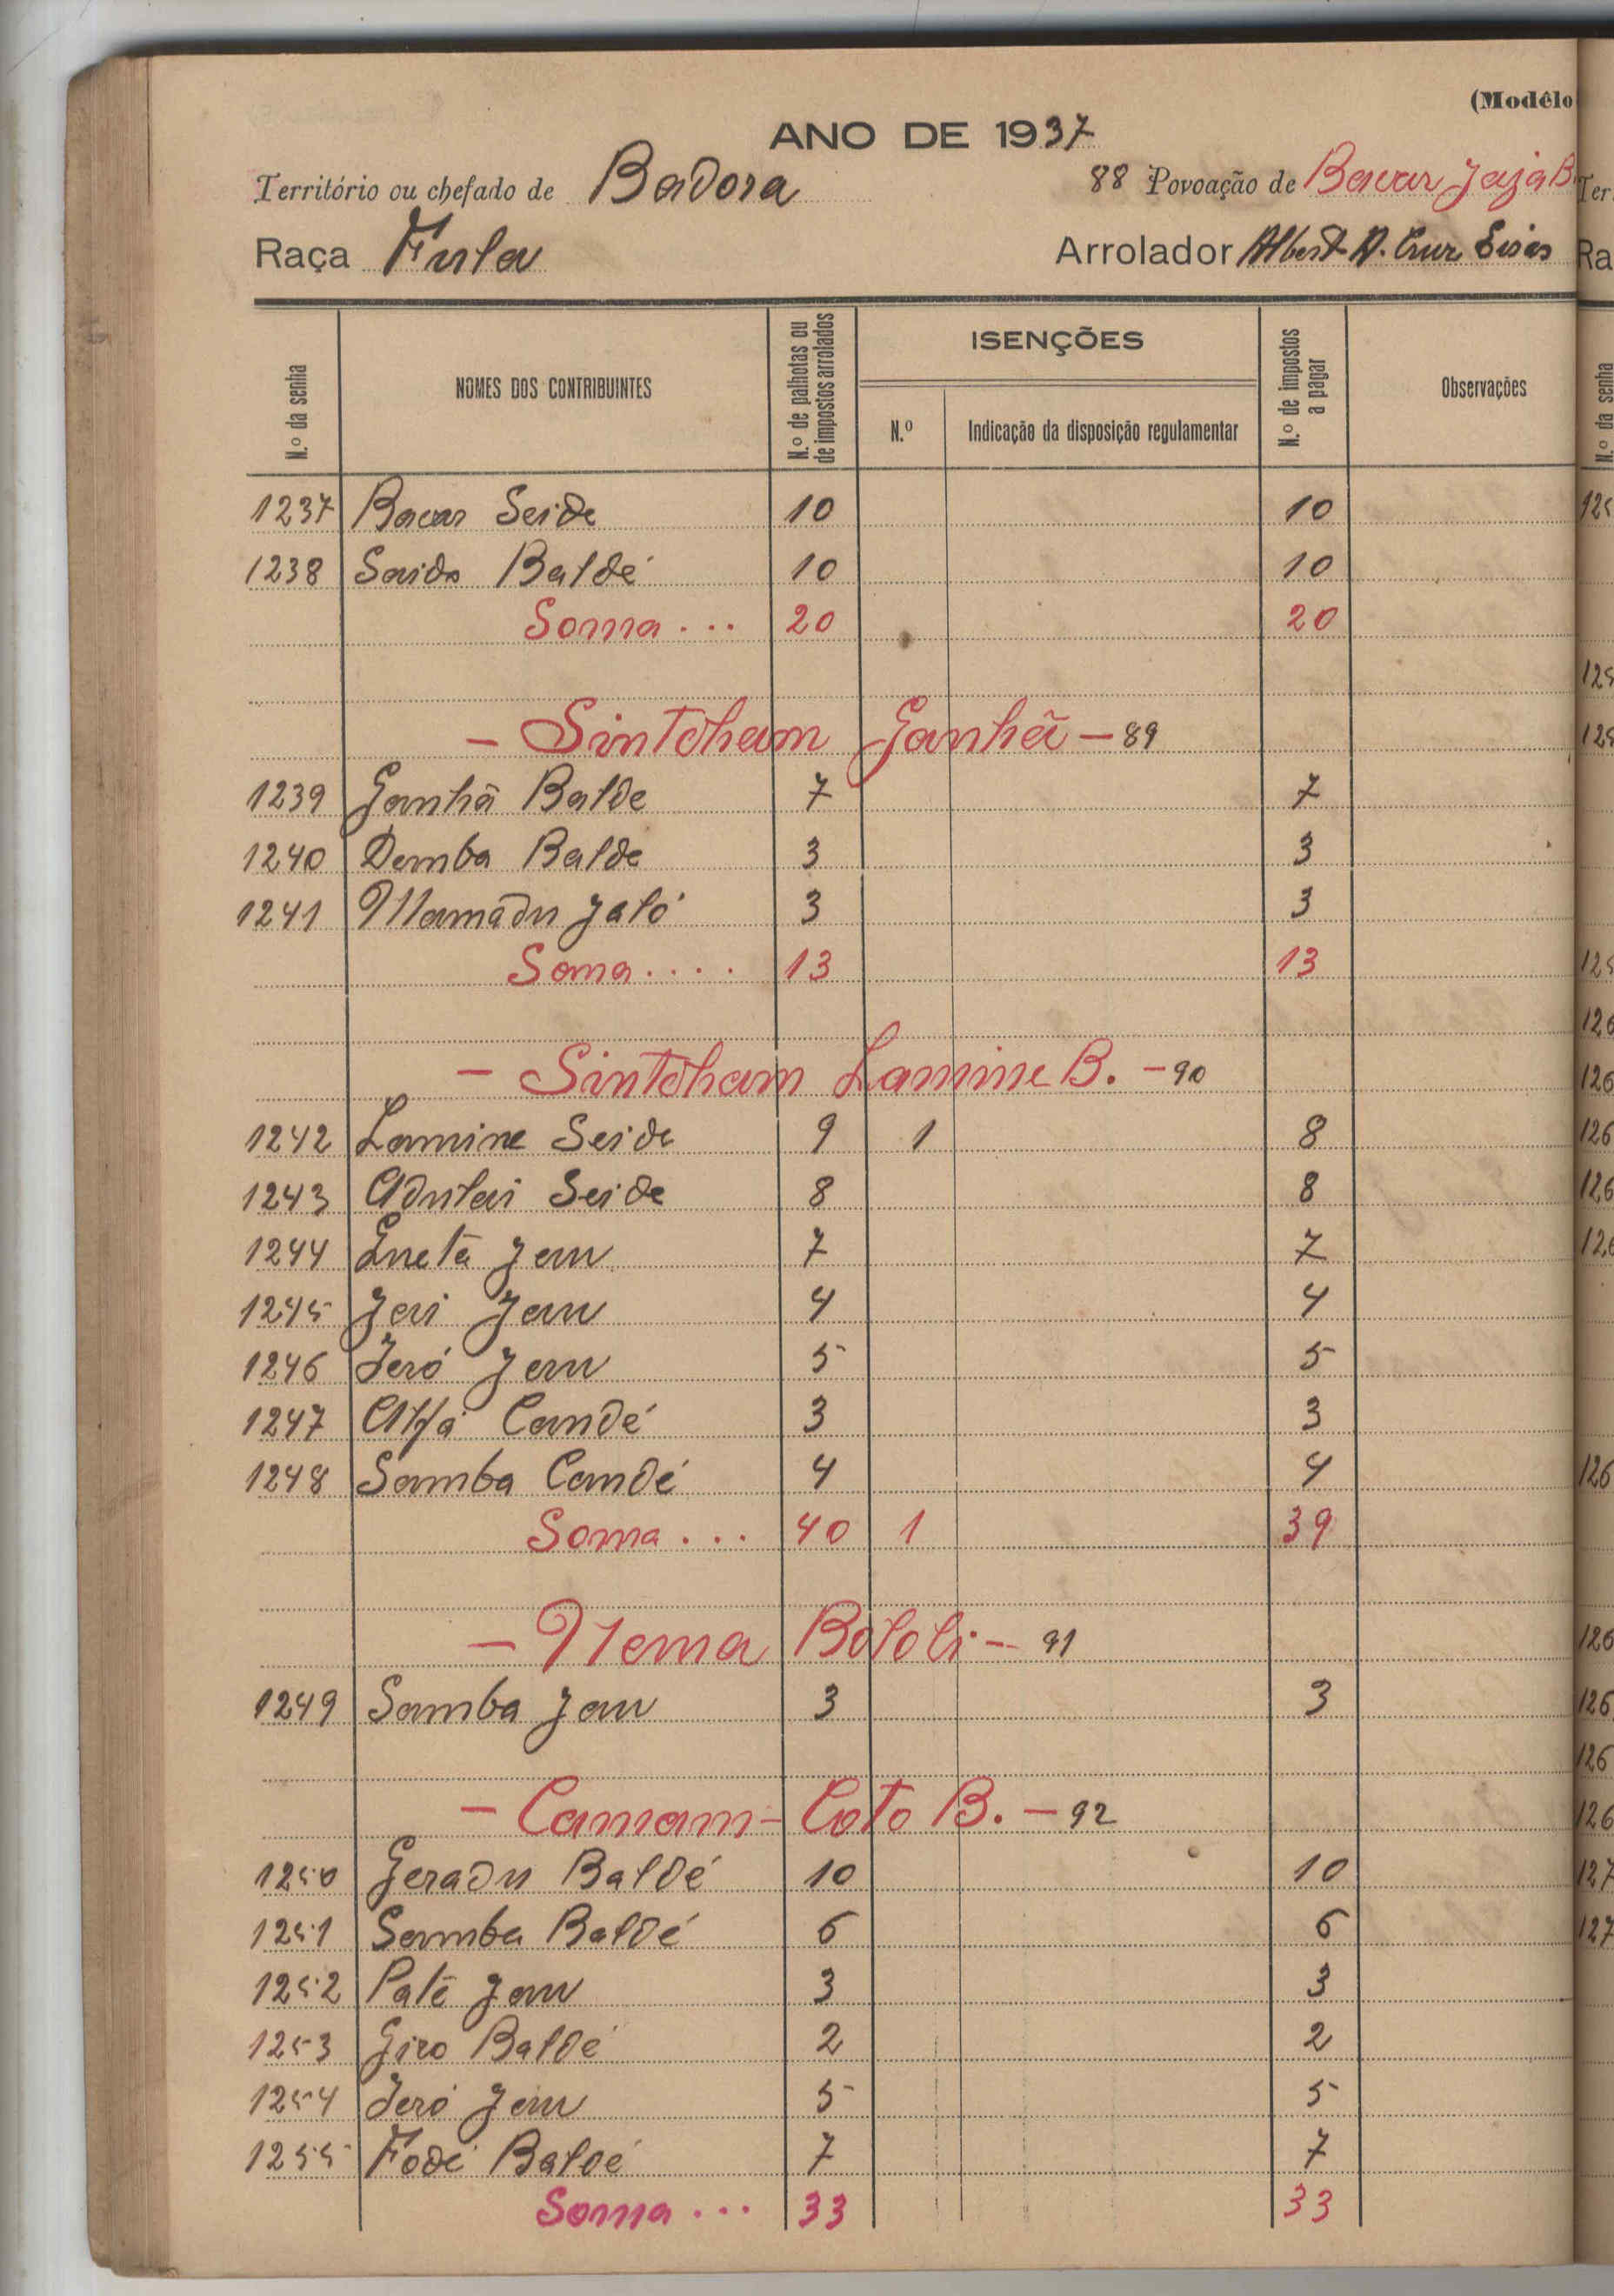 (Modêlo
ANO DE 1937
Território ou chefado de Badora 88 Povoação de Bacar Jaja B.
Raça Fula Arrolador Albert A. Cruz
N.º da senha NOMES DOS CONTRIBUINTES N.º de palhotas ou de impostos arrolados ISENÇÕES N.º Indicação da disposição regulamentar N.º de impostos a pagar Observações
1237 Bacar Seide 10 10
1238 Saido Baldé 10 10
Soma... 20 20
- Sintcham Ganhã - 89
1239 Ganhã Balde 7 7
1240 Demba Balde 3 3
1241 Mamadu Jaló 3 3
Soma.... 13 13
- Sintcham Lamine B. - 90
1242 Lamine Seide 9 1 8
1243 Adulai Seide 8 8
1244 Jau 7 7
1245 Jau 4 4
1246 Jeró Jau 5 5
1247 Alfa Candé 3 3
1248 Samba Candé 4 4
Soma... 40 1 39
- Nema Bololi - 91
1249 Samba Jau 3 3
- Camam-Coto B. - 92
1250 Geradu Baldé 10 10
1251 Samba Baldé 6 6
1252 Paté Jau 3 3
1253 Giro Baldé 2 2
1254 Jeró Jau 5 5
1255 Fodé Baldé 7 7
Soma... 33 33